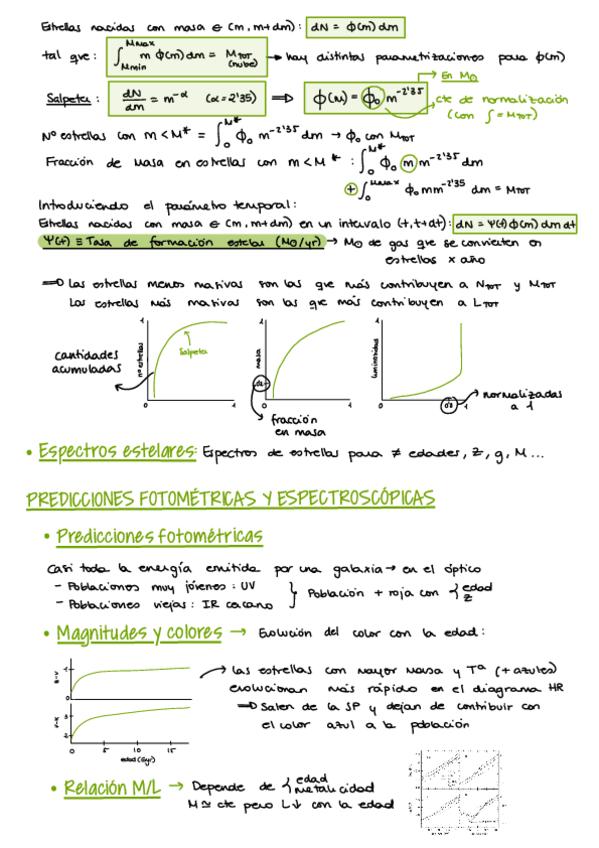 Estrellas nacidas con masa ∈ (m, m+dm): dN = ϕ(m) dm
tal que: ∫_{Mmin}^{Mmax} m ϕ(m) dm = M_TOT (nube) → hay distintas parametrizaciones para ϕ(m)
→ En M⊙
Salpeter: dN/dm = m^-α (α = 2'35) ⇒ ϕ(M) = ϕ₀ m^-2'35
cte de normalización
(con ∫ = M_TOT)
Nº estrellas con m < M* = ∫_0^{M*} ϕ₀ m^-2'35 dm → ϕ₀ con M_TOT
Fracción de masa en estrellas con m < M*: ∫_0^{M*} ϕ₀ m m^-2'35 dm
+ ∫_0^{Mmax} ϕ₀ m m^-2'35 dm = M_TOT
Introduciendo el parámetro temporal:
Estrellas nacidas con masa ∈ (m, m+dm) en un intervalo (t, t+dt): dN = Ψ(t) ϕ(m) dm dt
Ψ(t) ≡ Tasa de formación estelar (M⊙/yr) → M⊙ de gas que se convierten en
estrellas x año
⇒ Las estrellas menos masivas son las que más contribuyen a N_TOT y M_TOT
Las estrellas más masivas son las que más contribuyen a L_TOT
cantidades
acumuladas
nº estrellas
1
Salpeter
0
1
masa
1
0
1
fracción
en masa
luminosidad
1
0
1
normalizadas
a 1
• Espectros estelares: Espectros de estrellas para ≠ edades, Z, g, M...
PREDICCIONES FOTOMÉTRICAS Y ESPECTROSCÓPICAS
• Predicciones fotométricas
Casi toda la energía emitida por una galaxia → en el óptico
- Poblaciones muy jóvenes: UV
- Poblaciones viejas: IR cercano
Población + roja con { edad
Z
• Magnitudes y colores → Evolución del color con la edad:
B-V
1
0
V-K
3
2
0 5 10 15
edad (Gyr)
→ Las estrellas con mayor masa y Tª (+ azules)
evolucionan más rápido en el diagrama HR
⇒ Salen de la SP y dejan de contribuir con
el color azul a la población
• Relación M/L → Depende de { edad
metalicidad
M ≅ cte pero L↓ con la edad